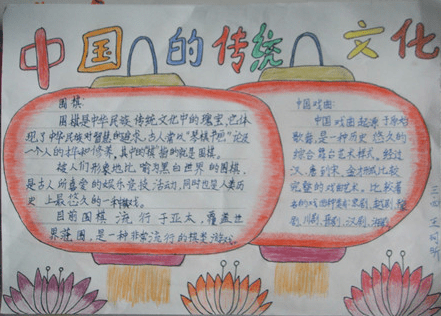 中国的传统文化
围棋：
围棋是中华民族传统文化中的瑰宝，它体
现了中华民族对智慧的追求，古人常以“琴棋书画”论及
一个人的才华和修养，其中的“棋”指的就是围棋。
被人们形象地比喻为黑白世界的围棋，
是古人所喜爱的娱乐竞技活动，同时也是人类历
史上最悠久的一种棋戏。
目前围棋流行于亚太，覆盖世
界范围，是一种非常流行的棋类游戏。
中国戏曲：
中国戏曲起源于原始
歌舞，是一种历史悠久的
综合舞台艺术样式。经过
汉、唐到宋、金才形成比较
完整的戏曲艺术，比较著
名的戏曲种类有：京剧、越剧、
川剧、汉剧、